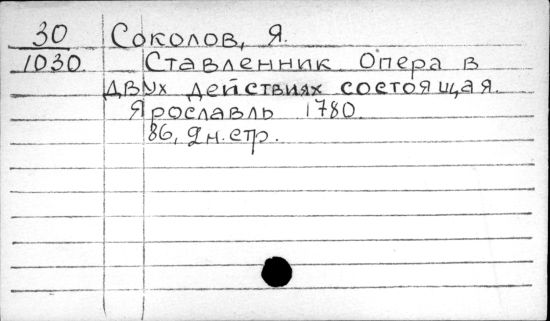 30 Соколов, Я.
1030 Ставленник. Опера в
двух действиях состоящая.
Ярославль 1780.
86, 2н.стр.